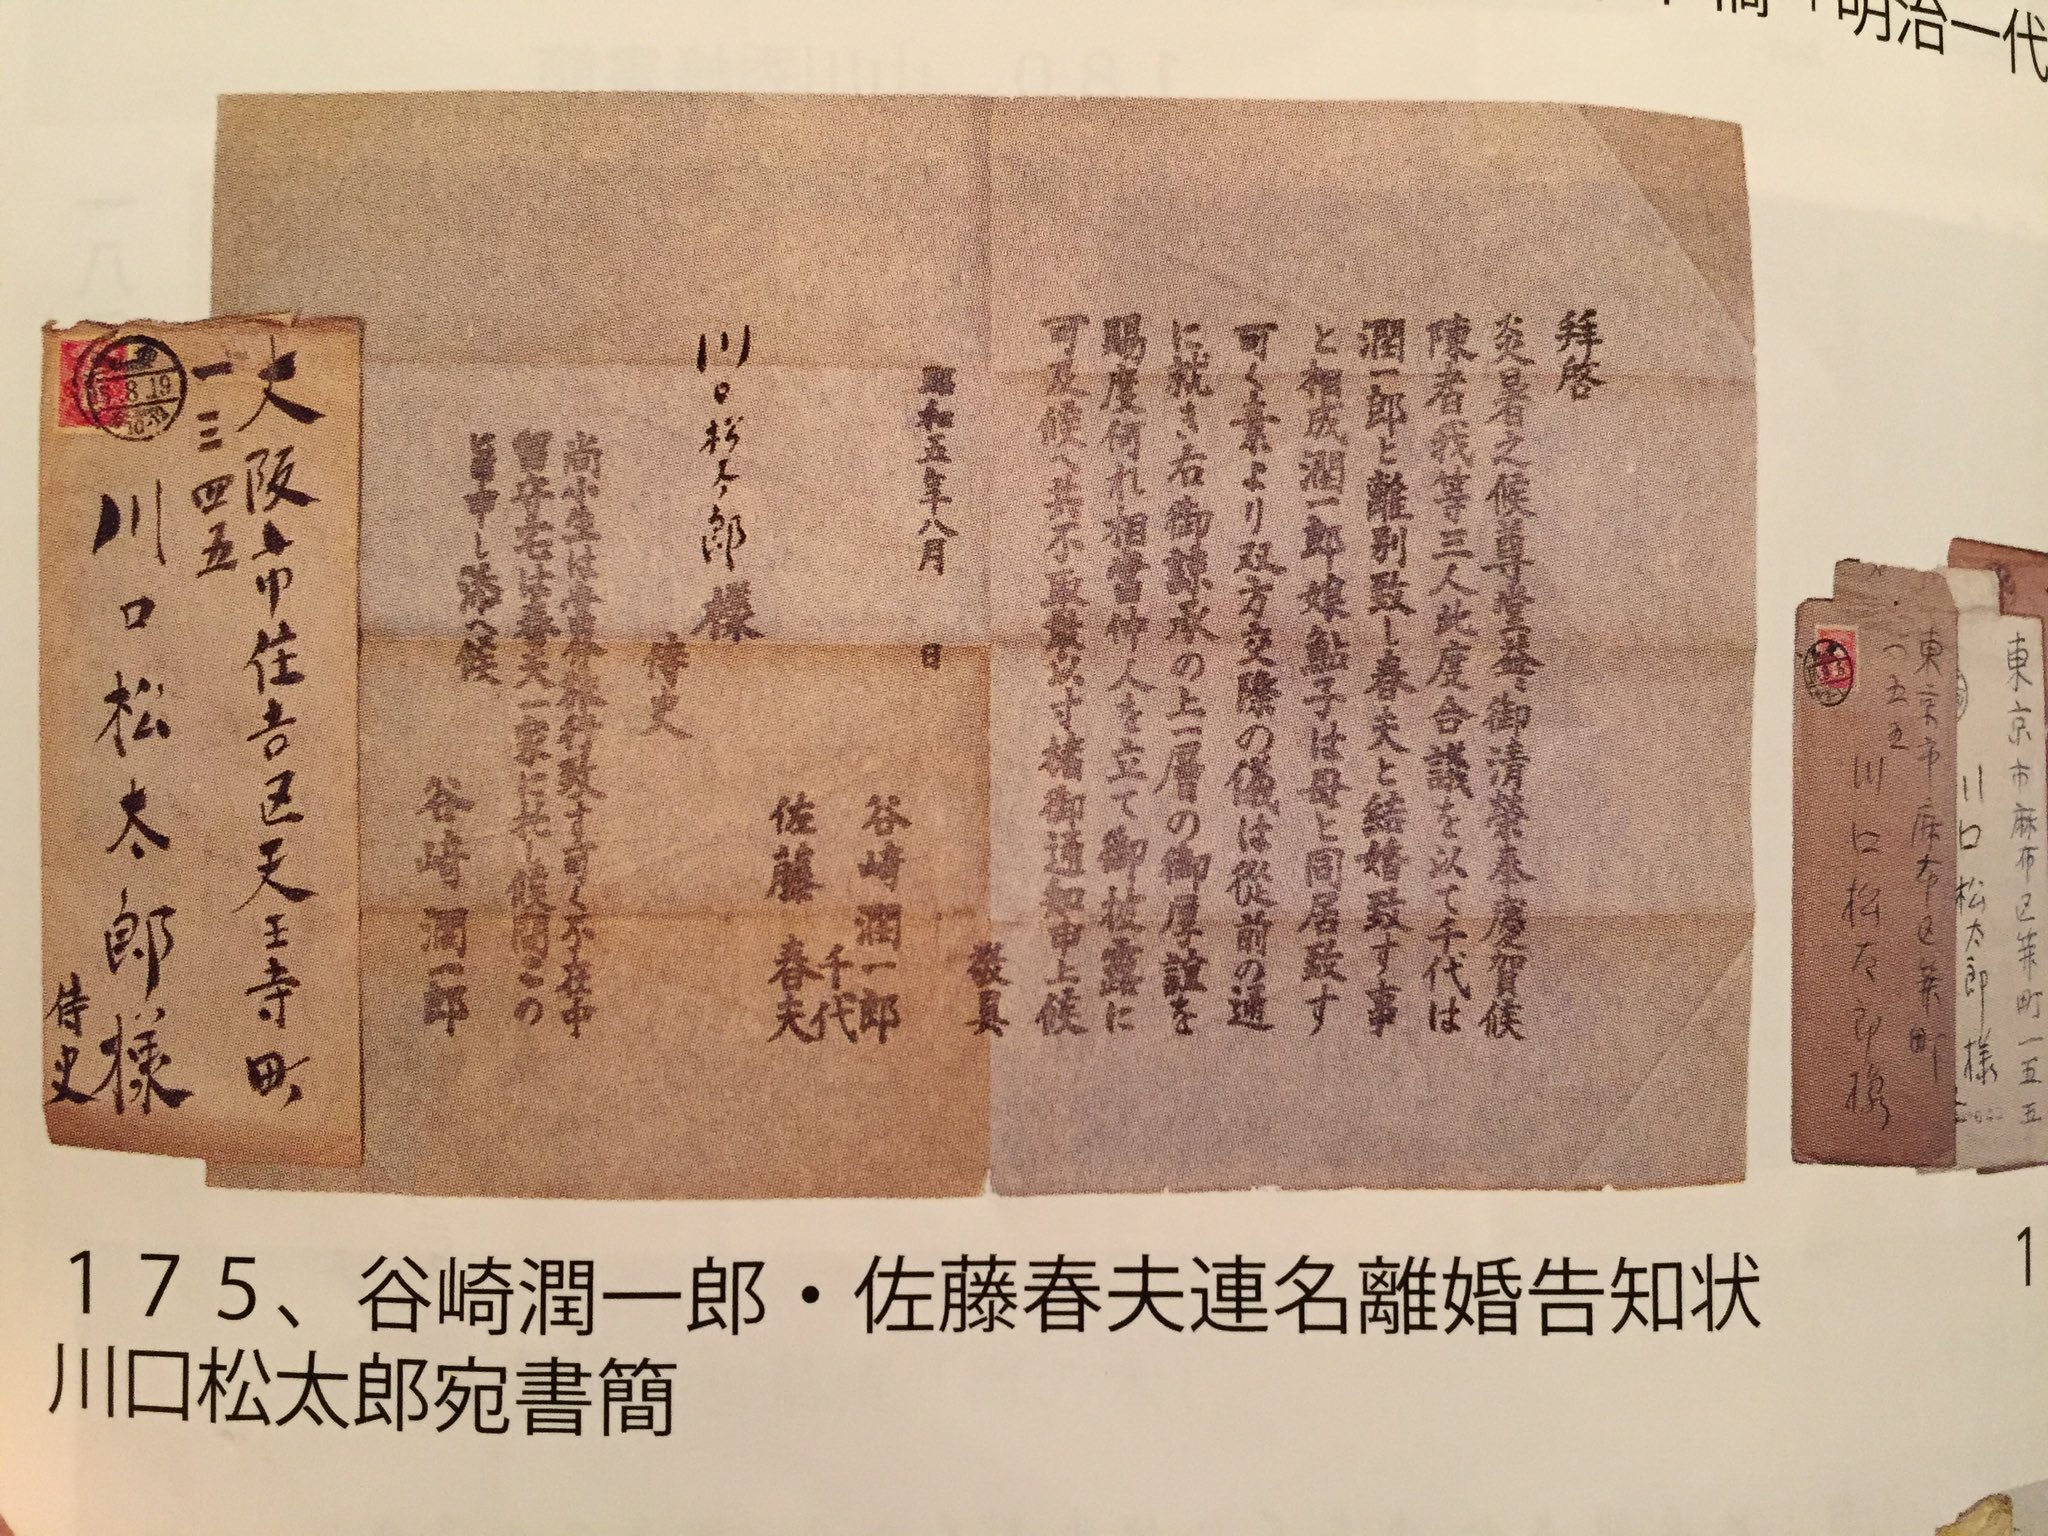 明治一代
拝啓
炎暑之候尊堂益々御清栄奉慶賀候
陳者我等三人此度合議を以て千代は
潤一郎と離別致し春夫と結婚致す事
と相成潤一郎娘鮎子は母と同居致す
可く素より双方交際の儀は従前の通
に就き右御諒承の上一層の御厚誼を
賜度何れ相当仲人を立て御披露に
可及候へ共不取敢以寸楮御通知申上候
敬具
谷崎潤一郎
千代
佐藤春夫
昭和五年八月 日
川口松太郎様
侍史
尚小生は当分旅行致す可く不在中
留守宅は春夫一家に託し候間この
申し添へ候
谷崎潤一郎
大阪市住吉区天王寺町
一三四五
川口松太郎様
侍史
8.19
東京市麻布区笄町一五五
川口松太郎様
東京市麻布区笄町
一五五
川口松太郎様
175、谷崎潤一郎・佐藤春夫連名離婚告知状
川口松太郎宛書簡
1